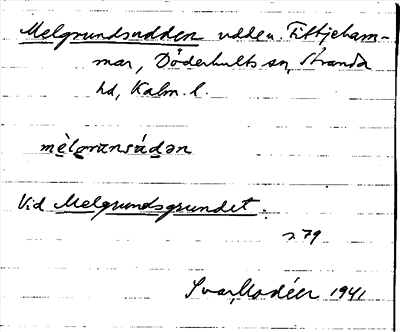 Melgrundsudden udde u. Fittjeham-
mar, Döderhults sn, Stranda
hd, Kalm. l.
mèlgransúdən
Vid Melgrundsgrundet.
s 79
Ivar Modéer 1941